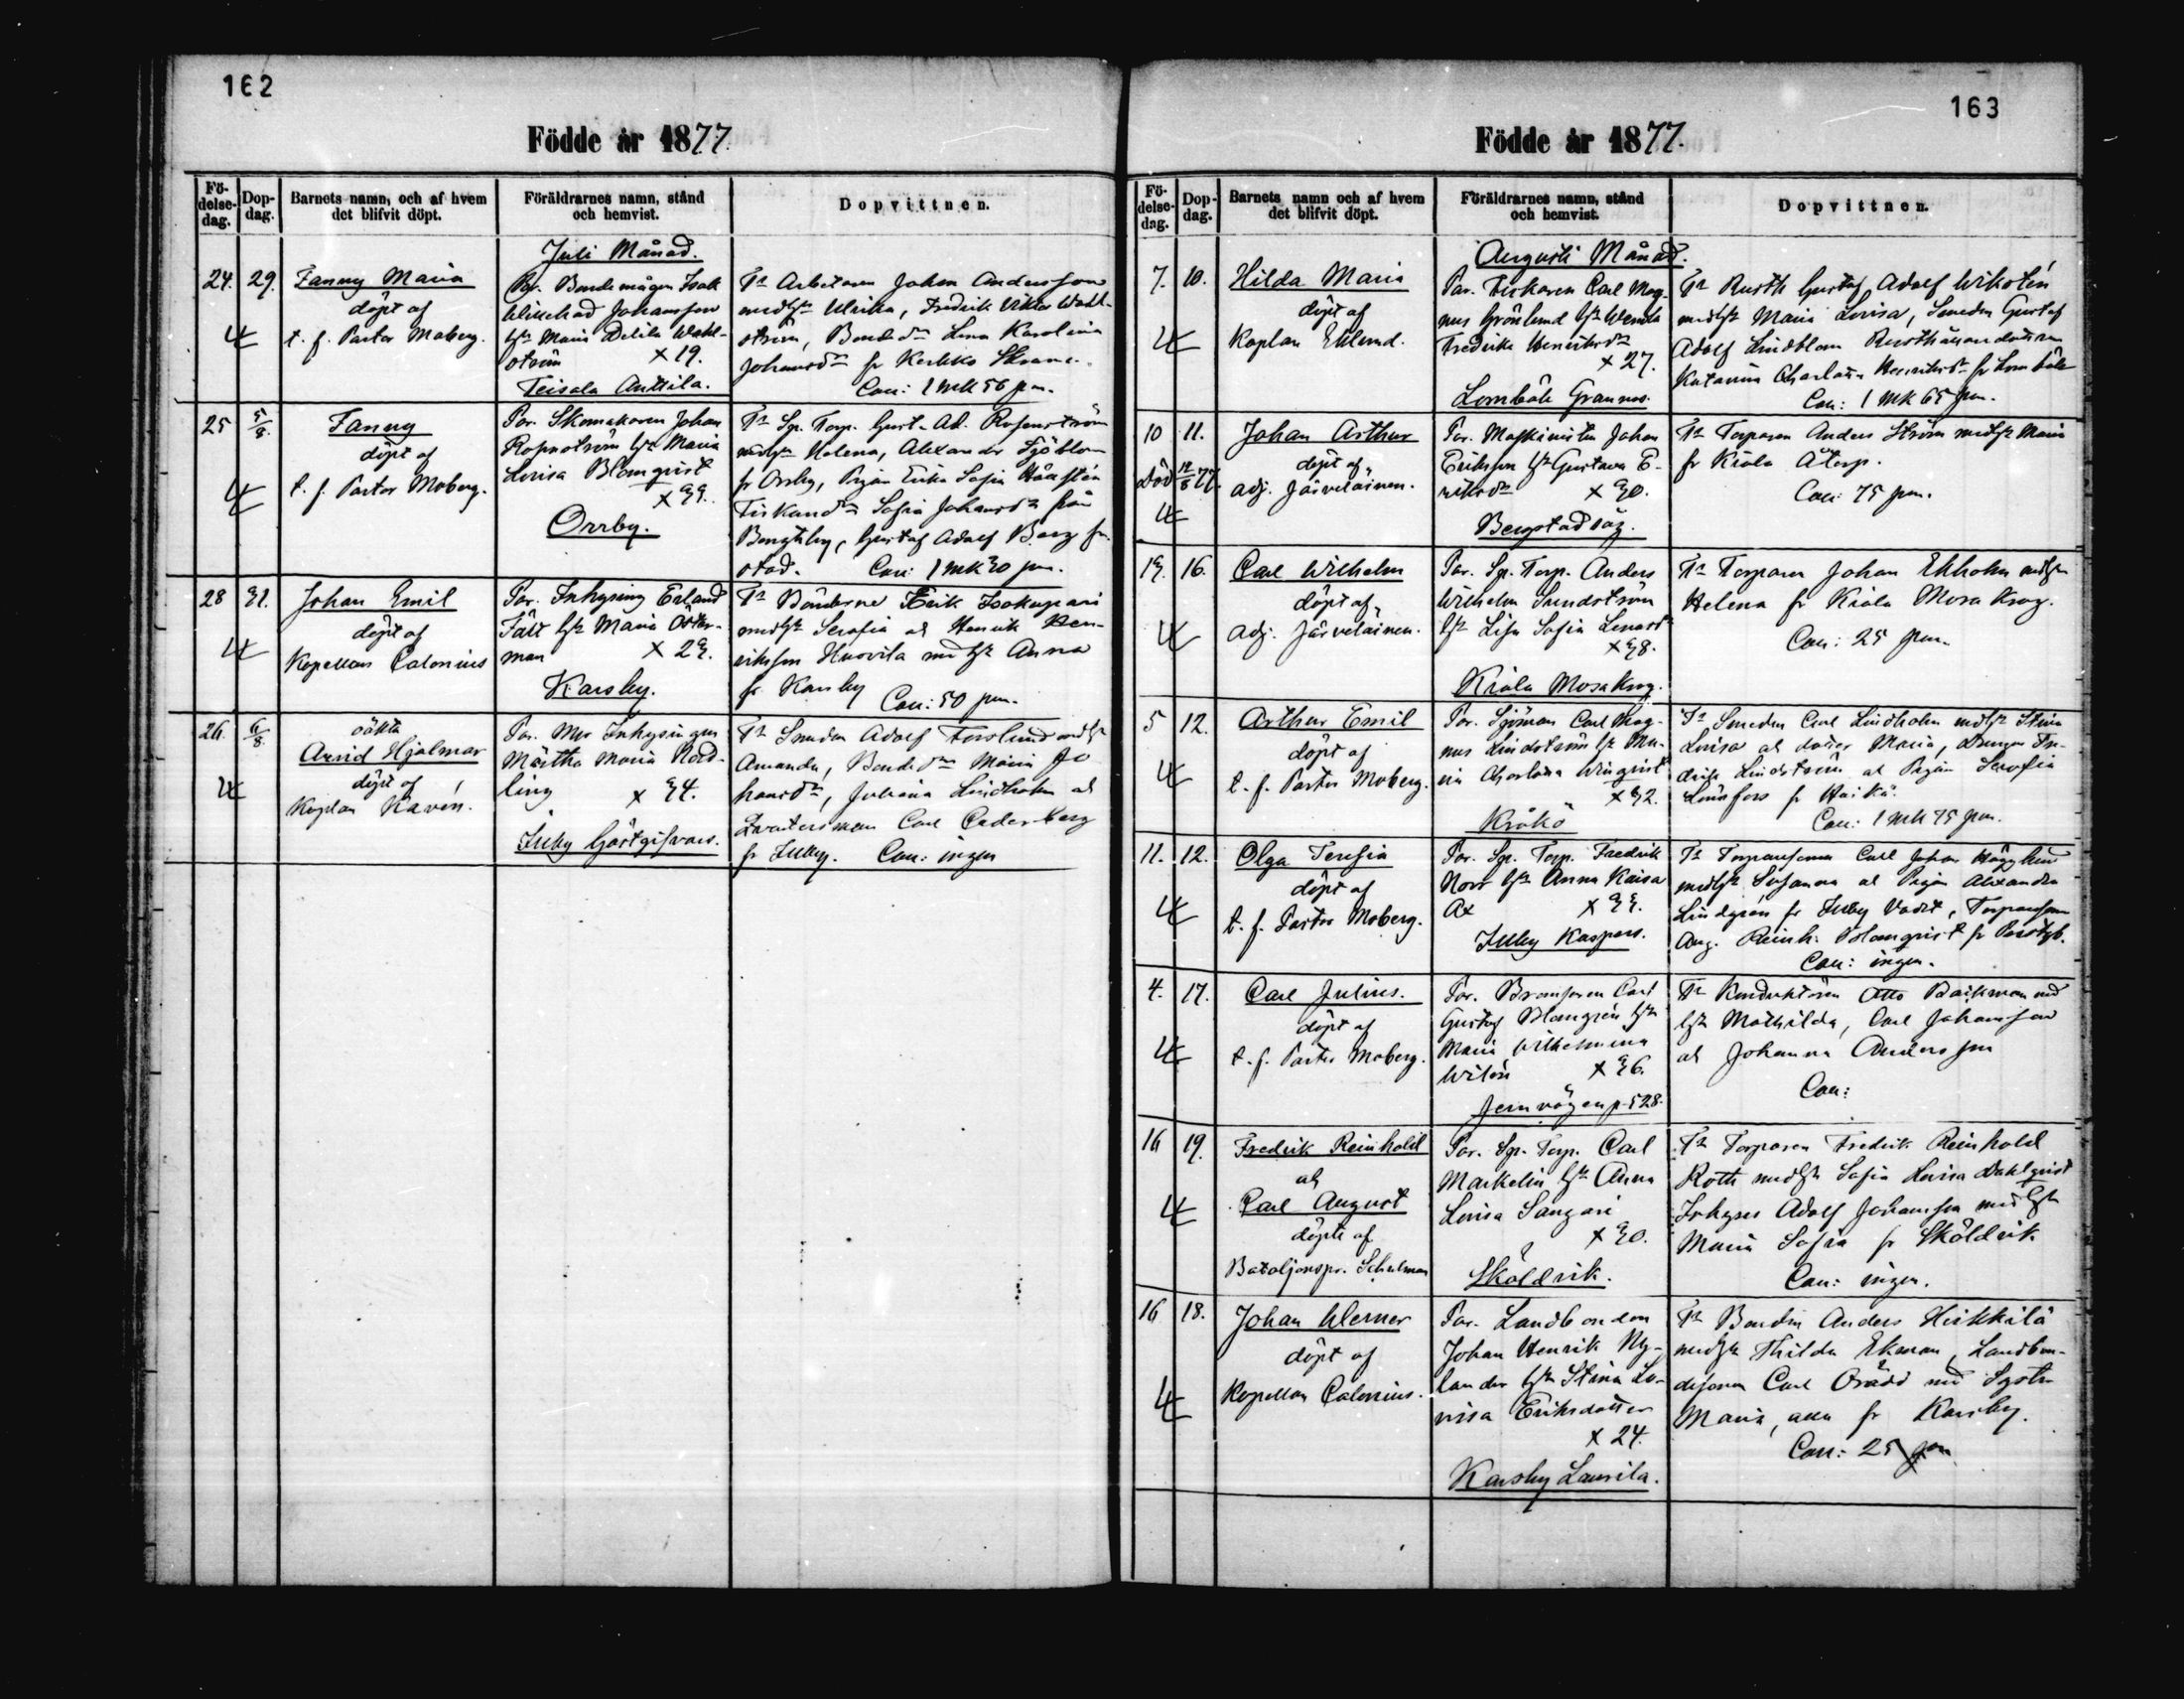 162
Födde år 1877.
Födelsedag.
Dopdag.
Barnets namn, och af hvem det blifvit döpt.
Föräldrarnes namn, stånd och hemvist.
Dopvittnen.
Juli Månad.
24. 29. Fanny Maria
döpt af
t. f. Pastor Moberg.
Par. Bondemågen Isak
Johansson
hst Maria Delila Wahl-
ström x 19.
Teisala Anttila.
Tn Arbetaren Johan Andersson
med hst Ulrika, Fredrik Viktor Wahl-
ström, Bonded. Lena Karolina
Johansdr fr
Coll: 1 mk 56 pn.
25 5/8. Fanny
döpt af
t. f. Pastor Moberg.
Par. Skomakaren Johan
Rosenström hst Maria
Lovisa Blomqvist
x 33.
Orrby.
Tn Sp. Torp. Gust. Ad. Rosenström
med hst Helena, Alexander Sjöblom
fr Orrby, Pigan Erika Sofia
Sofia Johansdr från
Bengtsby, Gustaf Adolf Berg fr.
stad. Coll: 1 mk 30 pn.
28 31. Johan Emil
döpt af
Kapellan Calonius
Par. Inhysing Erland
Fält hst Maria Öster-
man x 23.
Karsby.
Tn Bönderne Erik Isokupari
med hst Serafia ch Henrik Hen-
riksson Huovila med hst Anna
fr Karsby Coll: 50 pn.
26. 6/8. oäkta
Arvid Hjalmar
döpt af
Kaplan Kavén.
Par. Mor Inhysingen
Märtha Maria Nord-
ling x 34.
Illby Gästgifvars.
Tn Smeden Adolf Forslund med hst
Amanda, Bonded. Maria Jo
hansdr, Johanna Lindholm ch
Carl Cederberg
fr Illby. Coll: ingen
163
Födde år 1877.
Födelsedag.
Dopdag.
Barnets namn och af hvem det blifvit döpt.
Föräldrarnes namn, stånd och hemvist.
Dopvittnen.
Augusti Månad.
7. 10. Hilda Maria
döpt af
Kaplan Eklund.
Par. Fiskaren Carl Mag-
nus Grönlund hst Wenda
Fredrika Henriksdr
x 27.
Lomböle Grannas.
Tn Rusth. Gustaf Adolf Wikstén
med hst Maria Lovisa, Smeden Gustaf
Adolf Lindblom
Katarina Charlotta Henriksdr fr Lomböle
Coll: 1 mk 65 pn.
10 11. Johan Arthur
Död 12/8 77.
döpt af
adj. Järveläinen.
Par. Maskinisten Johan
Eriksson hst Gustava E-
riksdr x 30.
Bergstad såg.
Tn Torparen Anders Ström med hst Maria
fr Kiala Åtorp.
Coll: 75 pn.
13. 16. Carl Wilhelm
döpt af
Adj. Järveläinen.
Par. Sp. Torp. Anders
Wilhelm Sundström
hst Lisa Sofia
x 38.
Kiala Mosakrog.
Tn Torparen Johan Ekholm med hst
Helena fr Kiala Mosakrog.
Coll: 25 pn.
5 12. Arthur Emil
döpt af
t. f. Pastor Moberg.
Par. Sjöman Carl Mag-
nus Lindström hst Ma-
ria Charlotta Winqvist
x 32.
Kråkö
Tn Smeden Carl Lindholm med hst Stina
Lovisa ch dotter Maria, Drengen Fre-
drik Lindström ch Pigan Serafia
Lönnfors fr Haikå.
Coll: 1 mk 75 pn.
11. 12. Olga Teresia
döpt af
t. f. Pastor Moberg.
Par. Sp. Torp. Fredrik
Norr hst Anna Kaisa
Ax x 33.
Illby Kaspers.
Tn Torparesonen Carl Johan Hägglund
med hst Susanna ch Pigan Alexandra
Lindgren fr Illby, Torparesonen
Aug. Reinh. Blomqvist fr
Coll: ingen.
4. 17. Carl Julius.
döpt af
t. f. Pastor Moberg.
Par. Bromsaren Carl
Gustaf Blomgrén hst
Maria Wilhelmina
Wilén x 36.
Jernvägen p. 528.
Tn Konduktören Otto Backman med
hst Mathilda, Carl Johansson
ch Johanna Andersson
Coll:
16 19. Fredrik Reinhold
ch
Carl August
döpte af
Bataljonspr. Schulman
Par. Sp. Torp. Carl
Markelin hst Anna
Lovisa Sangari
x 30.
Sköldvik.
Tn Torparen Fredrik Reinhold
Roth med hst Sofia Lovisa Dahlqvist
Inhyses Adolf Johansson med hst
Maria Sofia fr Sköldvik
Coll: ingen.
16 18. Johan Werner
döpt af
Kapellan Calonius.
Par. Landbonden
Johan Henrik Ny-
lander hst Stina Lo-
visa Eriksdotter
x 24.
Karsby Laurila.
Tn Bonden Anders Heikkilä
med hst Thilda Ekman, Landbon-
desonen Carl Orädd med Syster
Maria, alla fr Karsby.
Coll: 25 pn